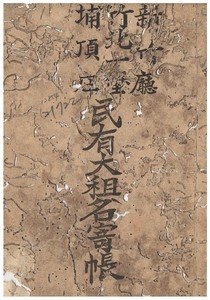 新竹廳
竹北一堡
埔頂庄
民有大租名寄帳